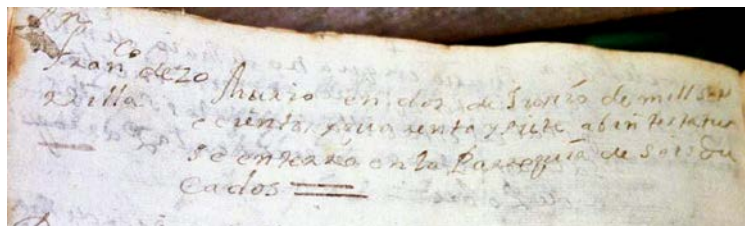 Fran.co de zo
rrilla
Murio en dos de Junio de mill set
ecientos y quarenta y siete abintestatus
se enterro en la Parroquia de seis du
cados